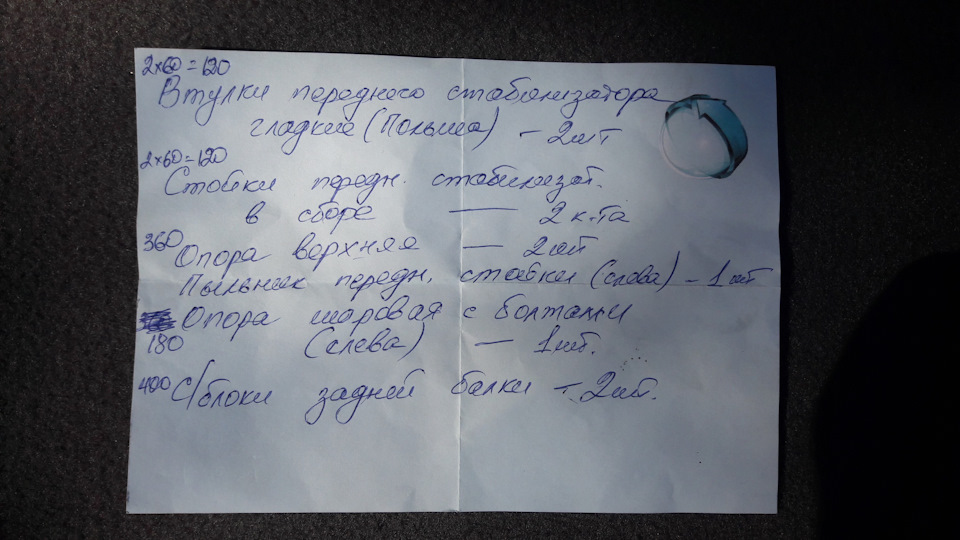 2×60=120
Втулки переднего стабилизатора
гладкие (Польша) - 2шт
2×60=120
Стойки передн. стабилизат.
в сборе — 2 к-та
360 Опора верхняя — 2шт
Пыльник передн. стойки (слева) - 1шт
Опора шаровая с болтами
180 (слева) — 1шт.
400 С/блоки задней балки - 2шт.